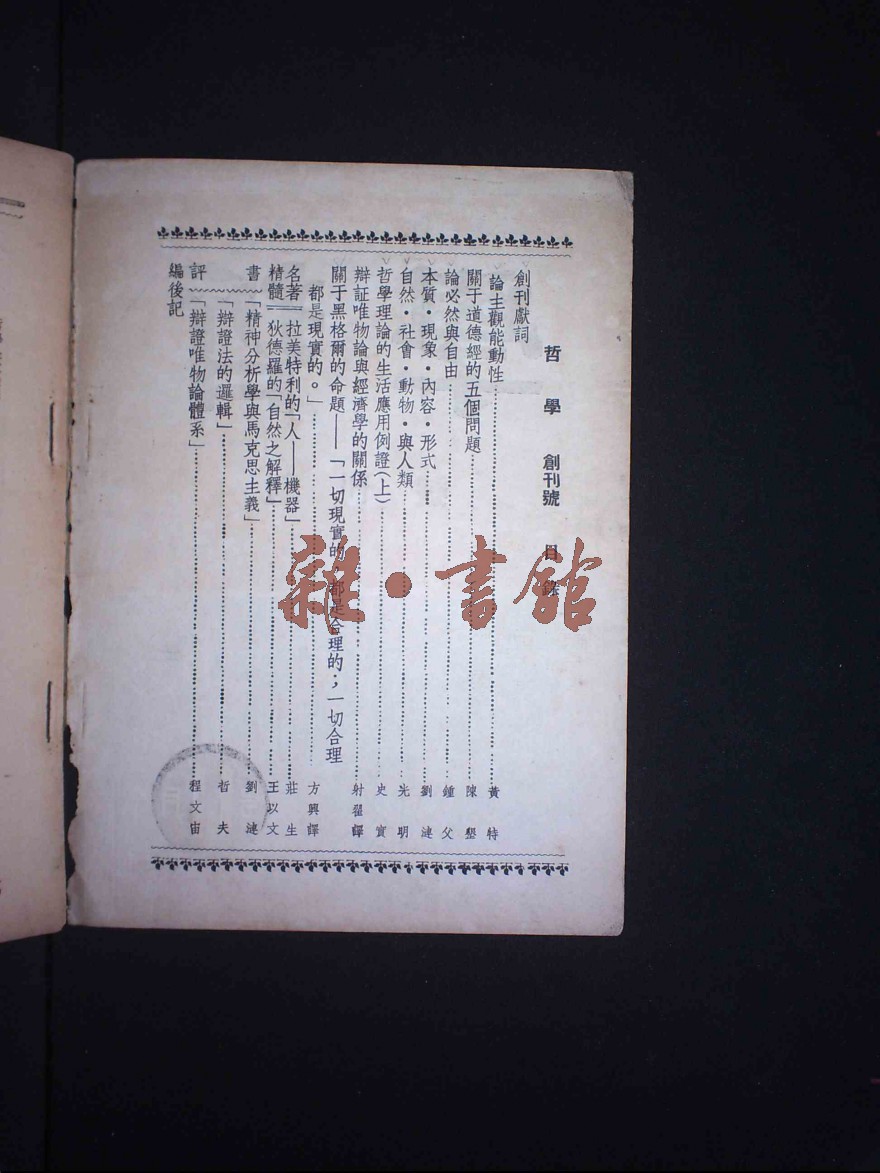 哲學 創刊號 目錄
創刊獻詞
論主觀能動性……黃特
關于道德經的五個問題……陳墾
論必然與自由……鍾父
本質·現象·內容·形式……劉漣
自然·社會·動物·與人類……光明
哲學理論的生活應用例證(上)……史實
辯証唯物論與經濟學的關係……射翟譯
關于黑格爾的命題——「一切現實的,都是合理的;一切合理
都是現實的。」……方興譯
名著 拉美特利的「人——機器」……莊生
精髓 狄德羅的「自然之解釋」……王以文
書 「精神分析學與馬克思主義」……劉漣
「辯證法的邏輯」……哲夫
評 「辯證唯物論體系」……程文宙
編後記
雜·書館